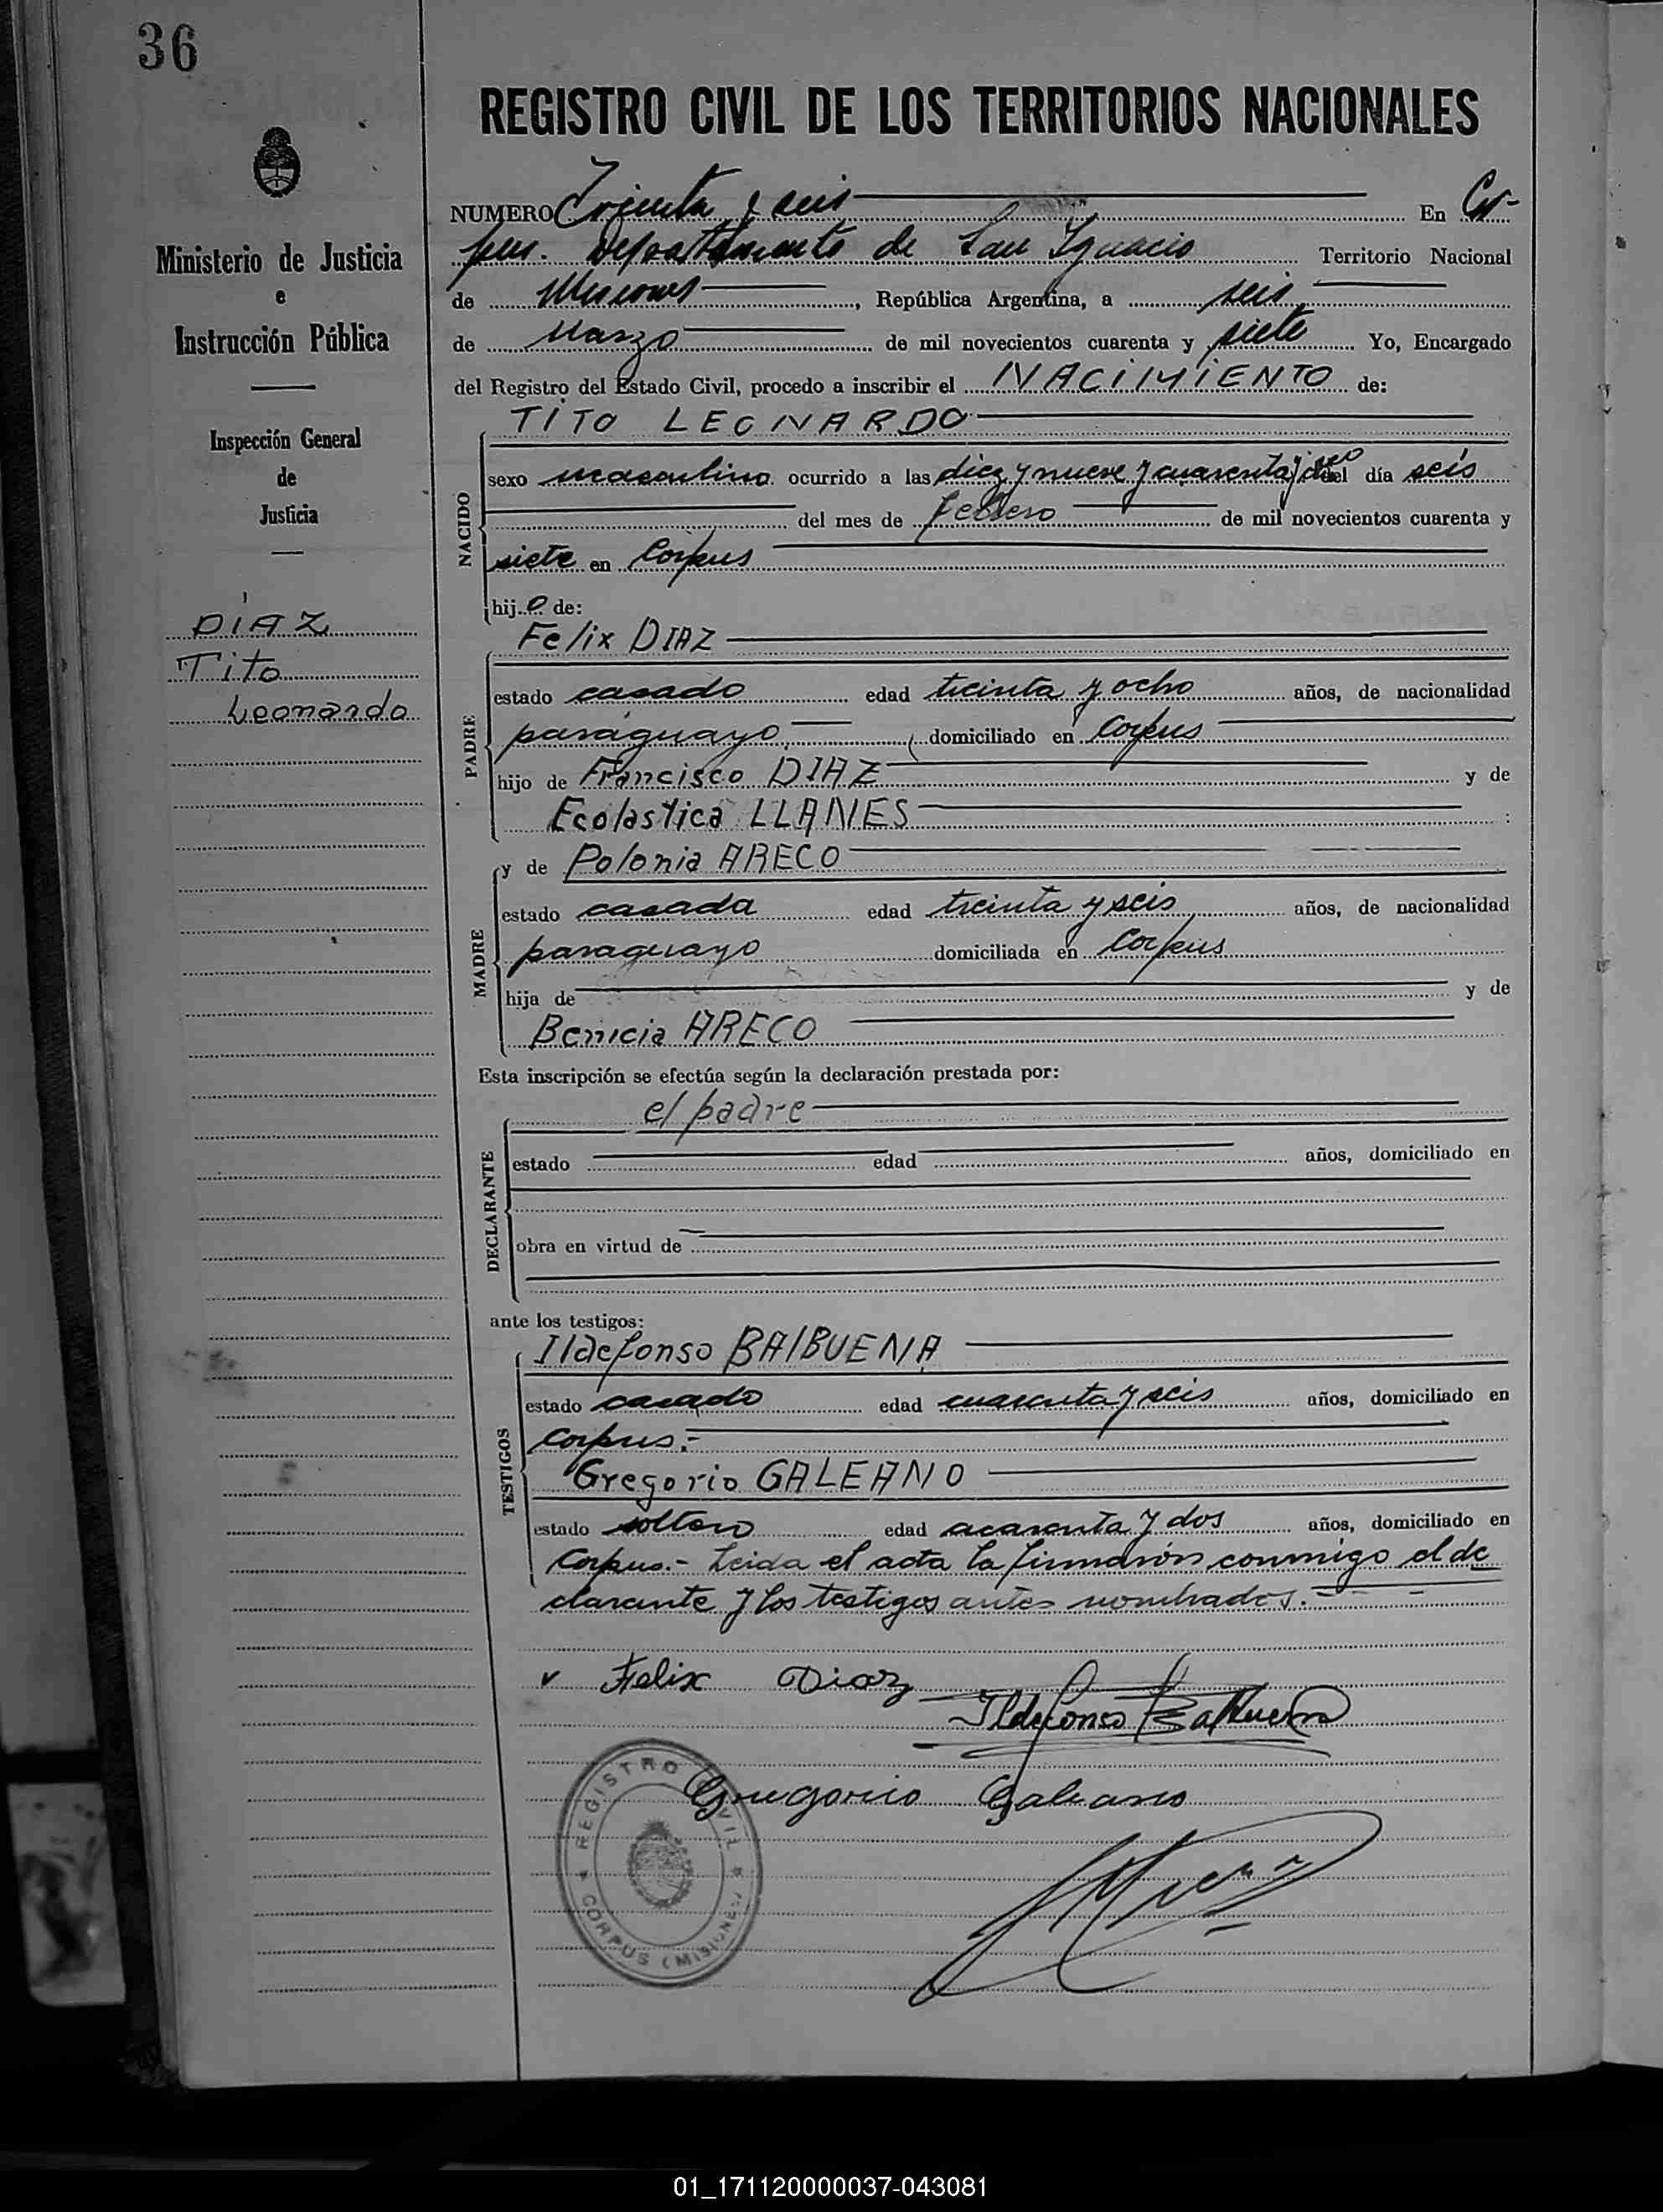 36
REGISTRO CIVIL DE LOS TERRITORIOS NACIONALES
Ministerio de Justicia
e
Instrucción Pública
Inspección General
de
Justicia
DIAZ
Tito
Leonardo
NUMERO Treinta y seis En Cor-
pus. Departamento de San Ignacio Territorio Nacional
de Misiones, República Argentina, a seis
de Marzo de mil novecientos cuarenta y siete Yo, Encargado
del Registro del Estado Civil, procedo a inscribir el NACIMIENTO de:
TITO LEONARDO
NACIDO
sexo masculino ocurrido a las diez y nueve y cuarenta y del día seis
del mes de Febrero de mil novecientos cuarenta y
siete en Corpus
hijo de:
Felix DIAZ
PADRE
estado casado edad treinta y ocho años, de nacionalidad
paraguayo domiciliado en Corpus
hijo de Francisco DIAZ y de
Ecolastica LLANES :
y de Polonia ARECO
MADRE
estado casada edad treinta y seis años, de nacionalidad
paraguayo domiciliada en Corpus
hija de y de
Benicia ARECO
Esta inscripción se efectúa según la declaración prestada por:
el padre
DECLARANTE
estado edad años, domiciliado en
obra en virtud de
ante los testigos:
Ildefonso BAlBUENA
TESTIGOS
estado casado edad cuarenta y seis años, domiciliado en
Corpus.-
Gregorio GALEANO
estado soltero edad acarenta y dos años, domiciliado en
Corpus.- Leida el acta la firmarón conmigo el de
clarante y los testigos antes nombrados.-
v Felix Diaz
Ildefonso Balbuena
Gregorio Galeano
REGISTRO CIVIL
CORPUS (MISIONES)
01_171120000037-043081